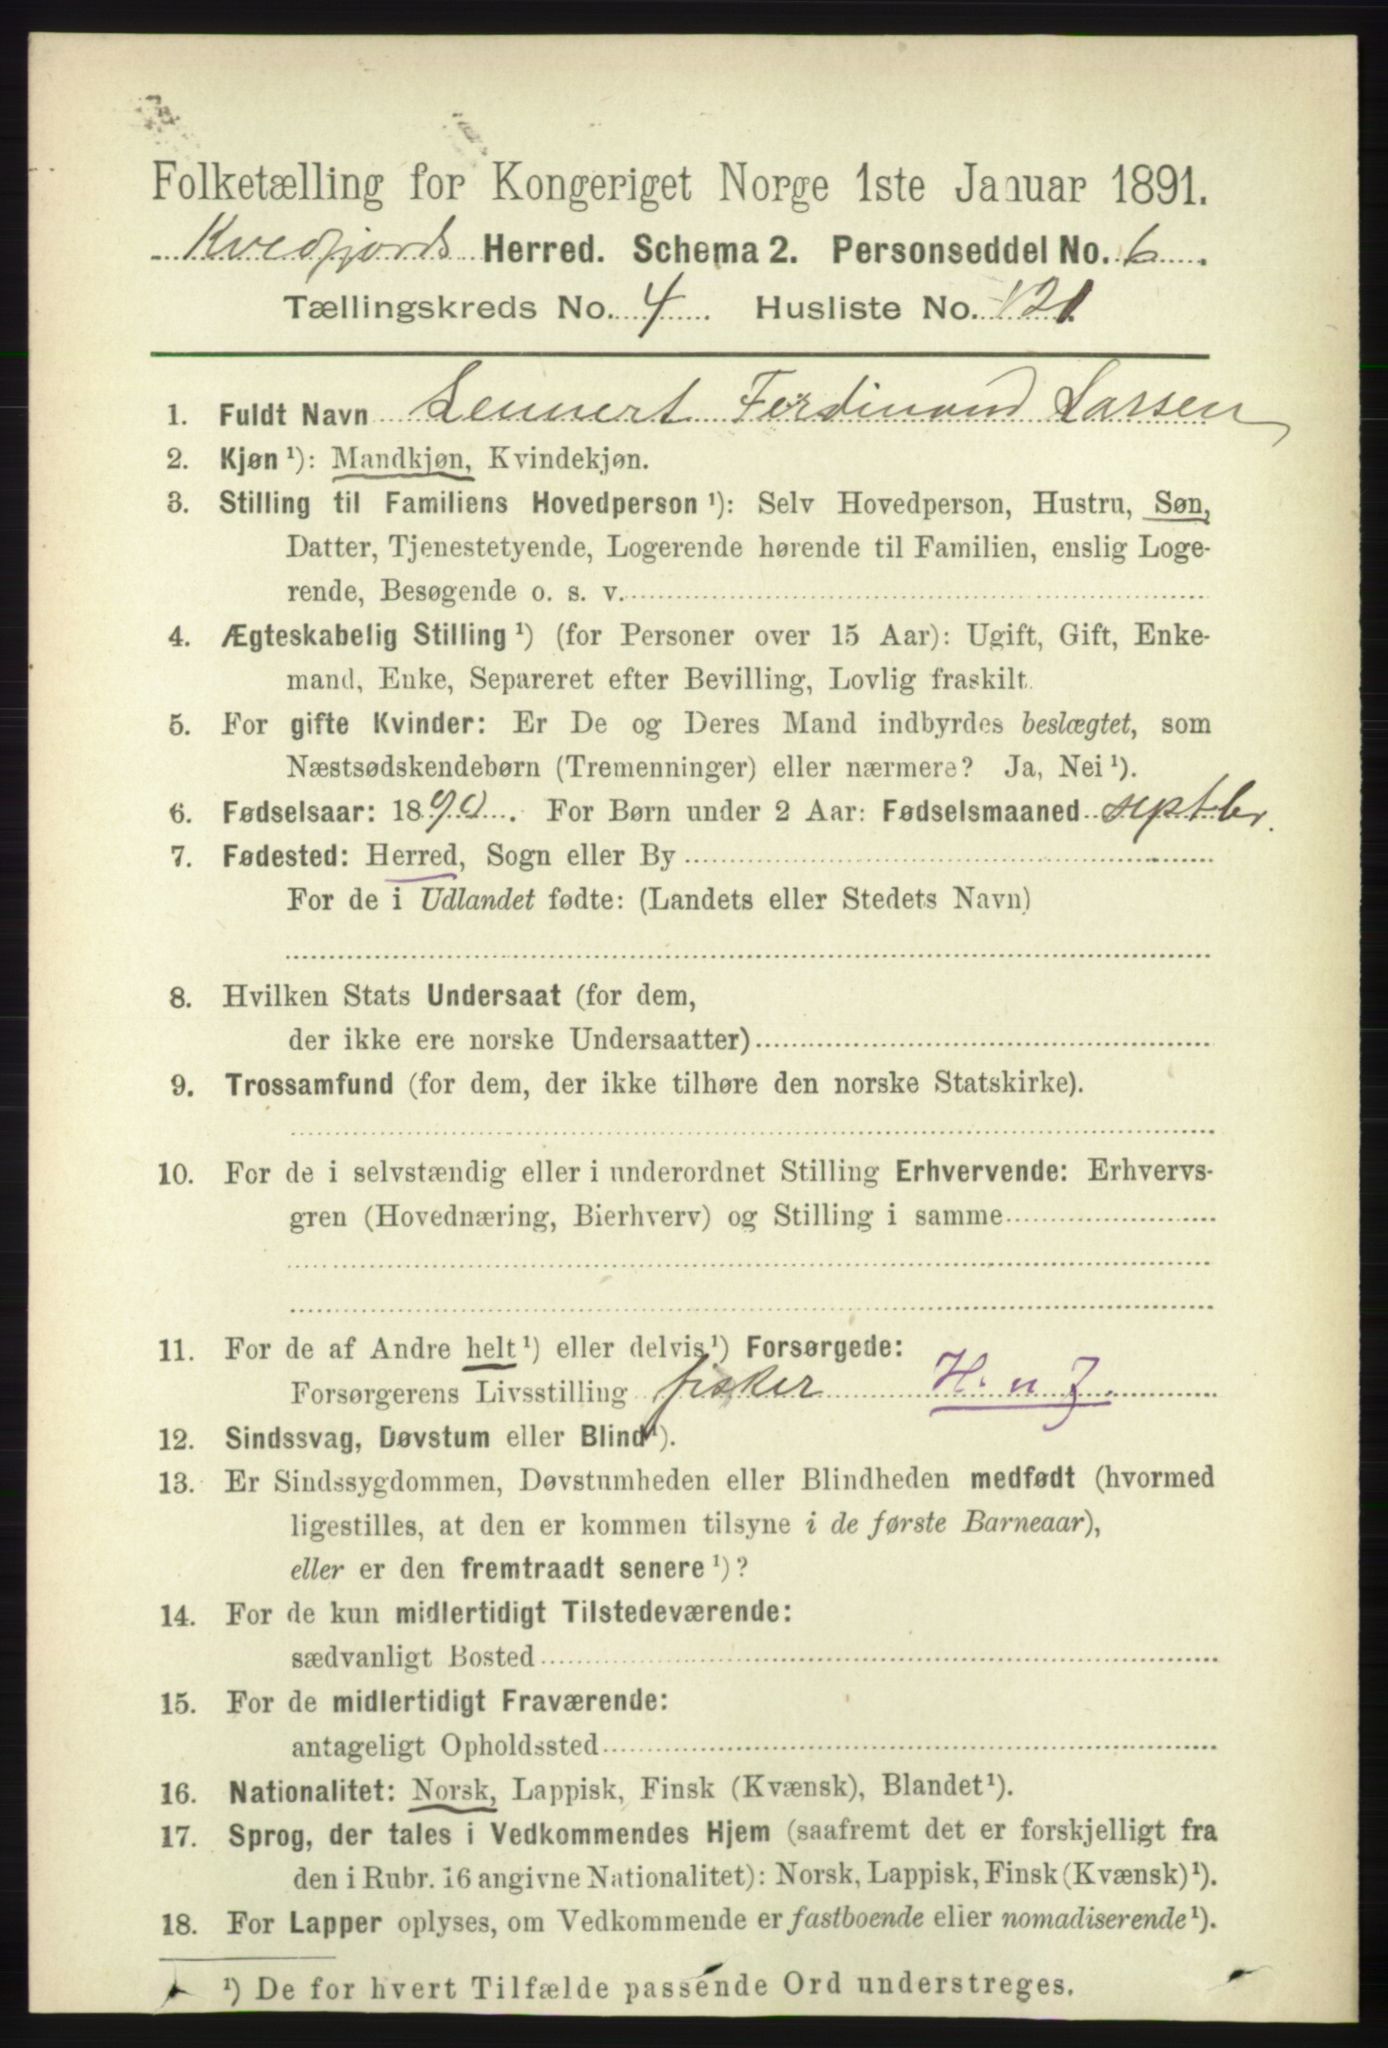 Folketælling for Kongeriget Norge 1ste Januar 1891.
Kvedfjords Herred. Schema 2. Personseddel No. 6
Tællingskreds No. 4 Husliste No. 121
1. Fuldt Navn Lennert Ferdinand Larsen
2. Kjøn¹): Mandkjøn, Kvindekjøn.
3. Stilling til Familiens Hovedperson¹): Selv Hovedperson, Hustru, Søn,
Datter, Tjenestetyende, Logerende hørende til Familien, enslig Loge-
rende, Besøgende o. s. v.
4. Ægteskabelig Stilling¹) (for Personer over 15 Aar): Ugift, Gift, Enke-
mand, Enke, Separeret efter Bevilling, Lovlig fraskilt.
5. For gifte Kvinder: Er De og Deres Mand indbyrdes beslægtet, som
Næstsødskendebørn (Tremenninger) eller nærmere? Ja, Nei¹).
6. Fødselsaar: 1890. For Børn under 2 Aar: Fødselsmaaned septbr.
7. Fødested: Herred, Sogn eller By
For de i Udlandet fødte: (Landets eller Stedets Navn)
8. Hvilken Stats Undersaat (for dem,
der ikke ere norske Undersaatter)
9. Trossamfund (for dem, der ikke tilhøre den norske Statskirke).
10. For de i selvstændig eller i underordnet Stilling Erhvervende: Erhvervs-
gren (Hovednæring, Bierhverv) og Stilling i samme
11. For de af Andre helt¹) eller delvis¹) Forsørgede:
Forsørgerens Livsstilling fisker H. n J.
12. Sindssvag, Døvstum eller Blind¹).
13. Er Sindssygdommen, Døvstumheden eller Blindheden medfødt (hvormed
ligestilles, at den er kommen tilsyne i de første Barneaar),
eller er den fremtraadt senere¹)?
14. For de kun midlertidigt Tilstedeværende:
sædvanligt Bosted
15. For de midlertidigt Fraværende:
antageligt Opholdssted
16. Nationalitet: Norsk, Lappisk, Finsk (Kvænsk), Blandet¹).
17. Sprog, der tales i Vedkommendes Hjem (saafremt det er forskjelligt fra
den i Rubr. 16 angivne Nationalitet): Norsk, Lappisk, Finsk (Kvænsk)¹).
18. For Lapper oplyses, om Vedkommende er fastboende eller nomadiserende¹).
¹) De for hvert Tilfælde passende Ord understreges.